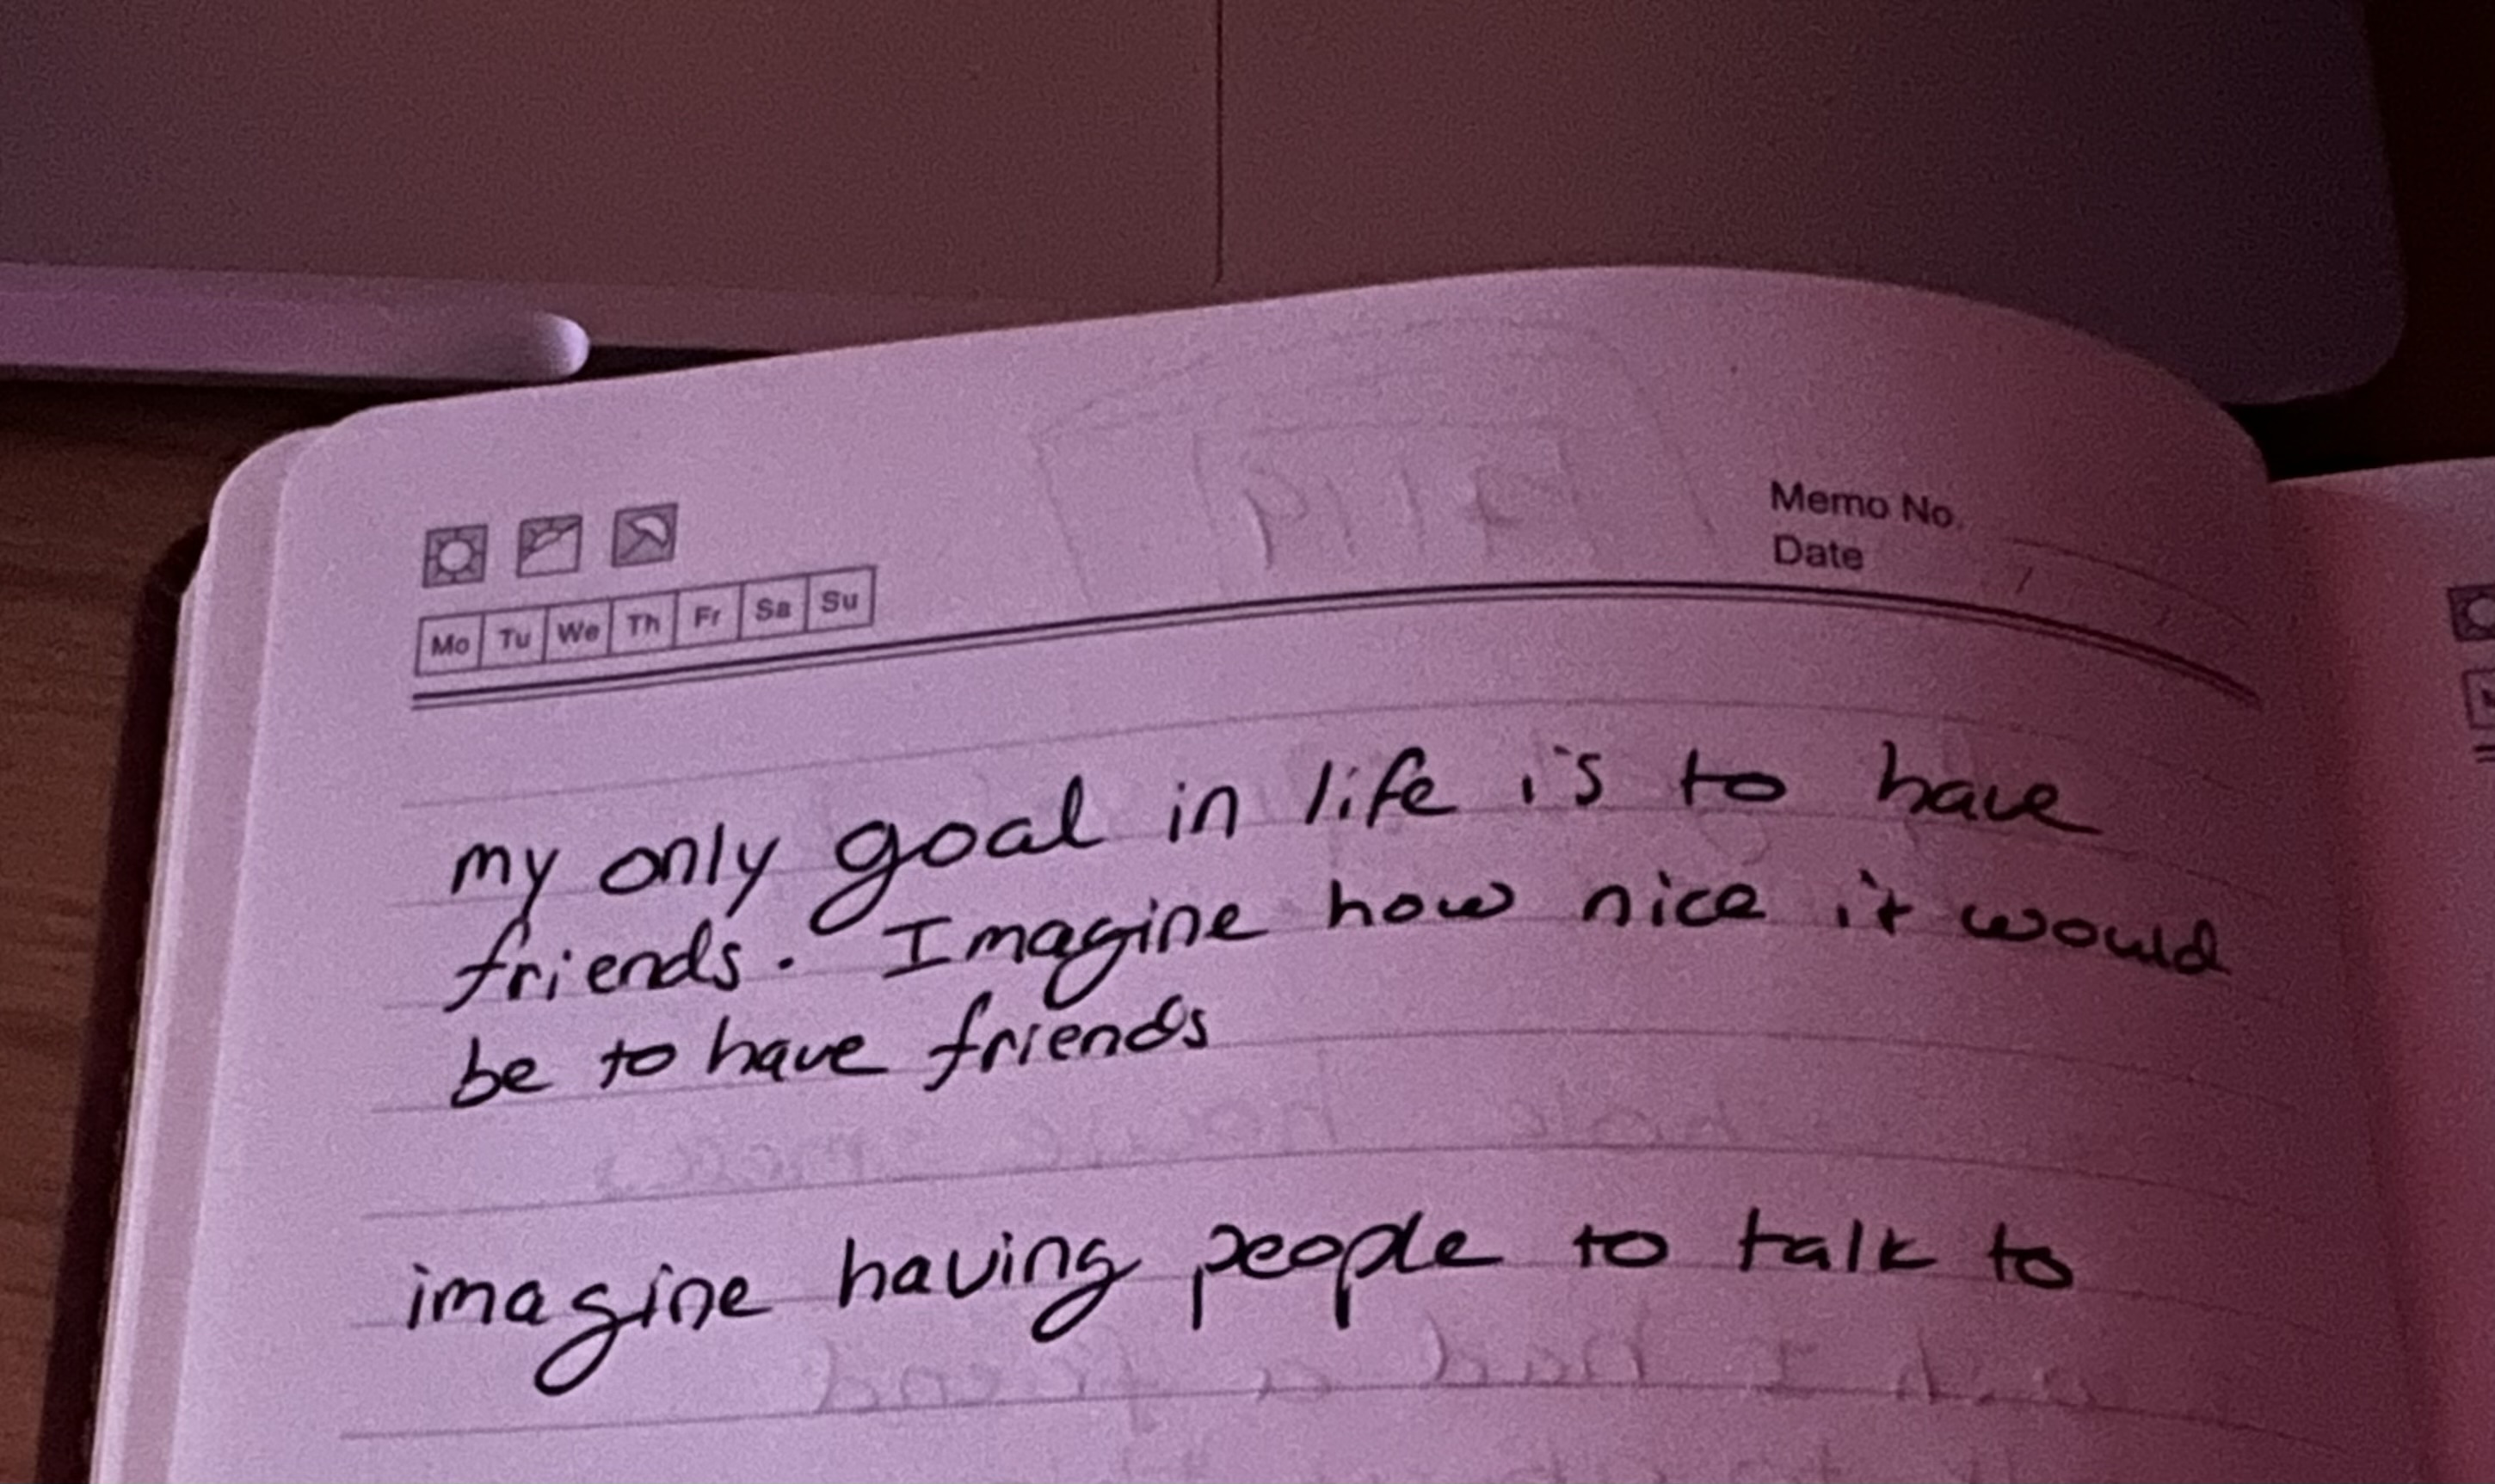 Memo No.
Date
Mo Tu We Th Fr Sa Su
my only goal in life is to have
friends. Imagine how nice it would
be to have friends
imagine having people to talk to